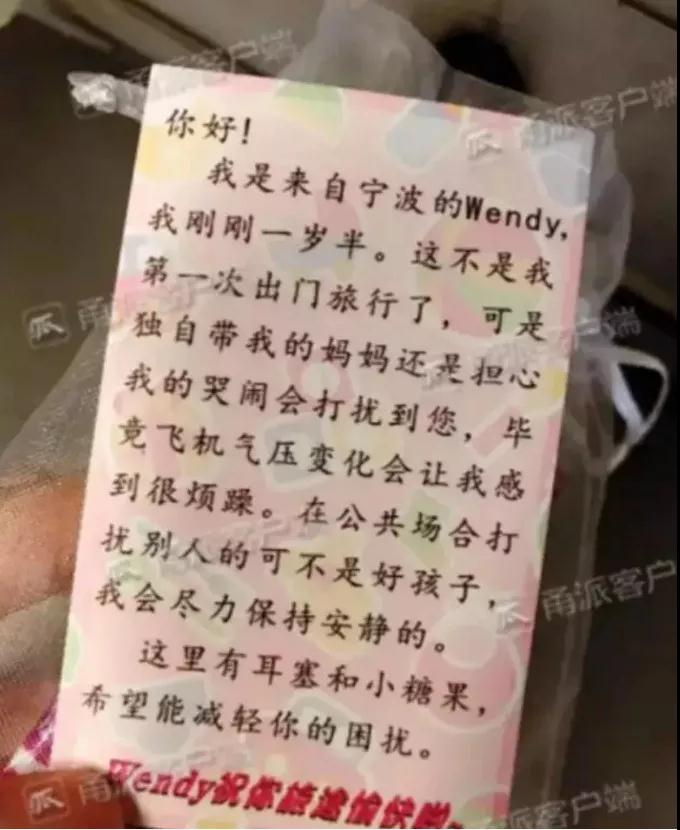 你好!
我是来自宁波的Wendy,
我刚刚一岁半。这不是我
第一次出门旅行了,可是
独自带我的妈妈还是担心
我的哭闹会打扰到您,毕
竟飞机气压变化会让我感
到很烦躁。在公共场合打
扰别人的可不是好孩子,
我会尽力保持安静的。
这里有耳塞和小糖果,
希望能减轻你的困扰。
Wendy祝你旅途愉快哟~
甬派客户端
甬派客户端
甬派客户端
甬派客户端
甬派客户端
甬派客户端
甬派客户端
甬派客户端